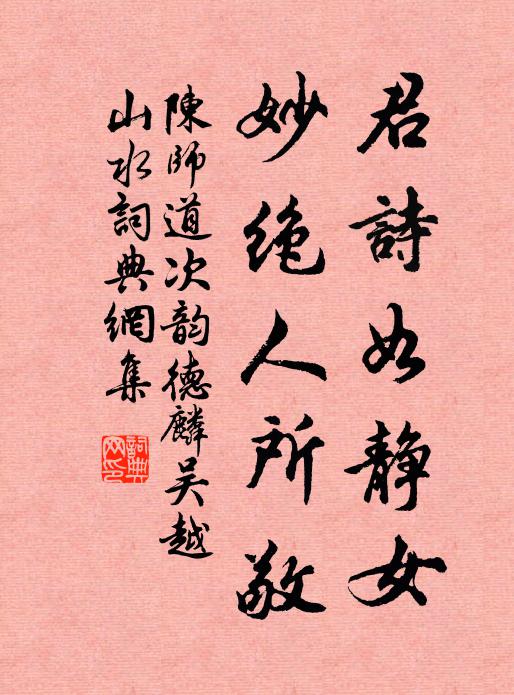 君詩如静女
妙绝人所敬
陳師道次韵德麟吴越
山水詞典網集
詞典网印